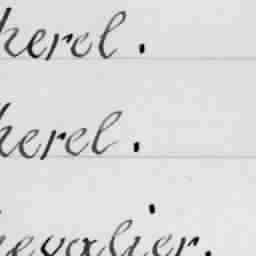 herel.
herel.
hevalier.